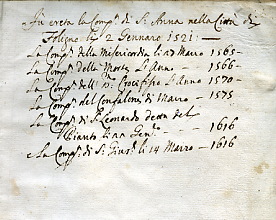 Fu ereta la Comp.a di S. Anna nella Città di
Foligno li 2 Gennaro 1521.
La Comp.a della Misericordia li 17 Marzo 1565-
La Comp.a della Morte l'Anno - 1566-
La Comp.a dell' Crocifisso l'Anno 1570-
La Comp.a del Confalone di Marzo - 1575
La Comp.a di S. Leonardo detta del
Pianto li Gen.o - 1616
La Comp.a di S. Gius.e li 14 Marzo - 1616